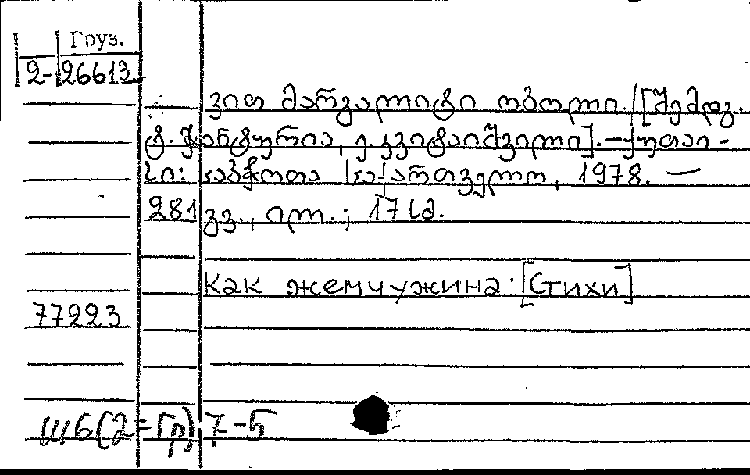 Груз.
2-26613
ვით მარგალიტი ობოლი. /[შემდგ.
ტ. ჭანტურია, ე. კვიტაიშვილი]. — ქუთაი-
სი: საბჭოთა საქართველო, 1978. —
281 გვ., ილ.; 17 სმ.
Как жемчужина [Стихи]
77223
Ш6(2=Гр)7-5